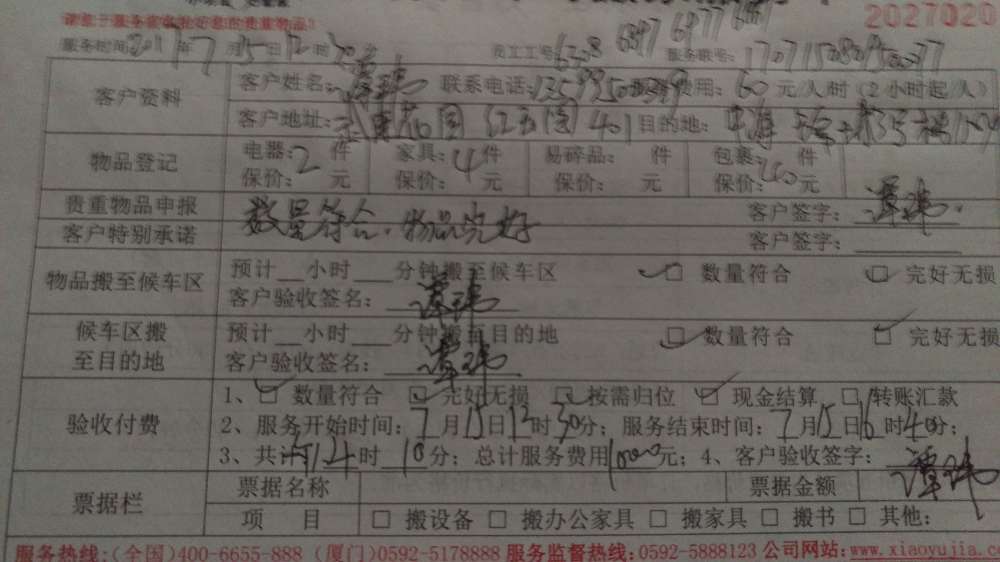 2027020
服务时间2017年7月15日12时30分 员工工号6308 6897 6977 服务联号:
客户资料 客户姓名:谭玮 联系电话: 费用:60元/人时(2小时起/人)
客户地址: 花园 红 401目的地:
物品登记 电器:2件 家具:4件 易碎品: 件 包裹: 件
保价: 元 保价: 元 保价: 元 保价: 元
贵重物品申报 数量符合.物品完好 客户签字:谭玮
客户特别承诺 客户签字:
物品搬至候车区 预计__小时___分钟搬至候车区 ☑数量符合 ☑完好无损
客户验收签名:谭玮
候车区搬至目的地 预计__小时___分钟搬至目的地 ☑数量符合 ☑完好无损
客户验收签名:谭玮
验收付费 1、☑数量符合 ☑完好无损 ☑按需归位 ☑现金结算 □转账汇款
2、服务开始时间:7月15日12时30分;服务结束时间:7月15日16时40分;
3、共计 4时10分;总计服务费用1000元;4、客户验收签字:谭玮
票据栏 票据名称 票据金额
项 目 □搬设备 □搬办公家具 □搬家具 □搬书 □其他:
服务热线:(全国)400-6655-888 (厦门)0592-5178888 服务监督热线:0592-5888123 公司网站:www.xiaoyujia.com